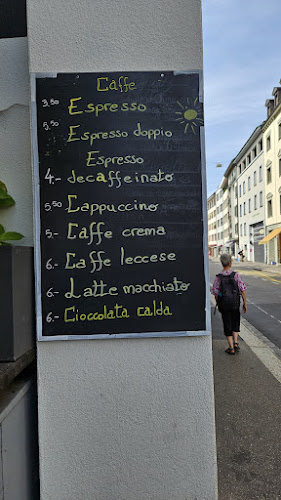 Caffe
3.50 Espresso
5.50 Espresso doppio
Espresso
4.- decaffeinato
5.50 Cappuccino
5.- Caffe crema
6.- Caffe leccese
6.- Latte macchiato
6.- Cioccolata calda